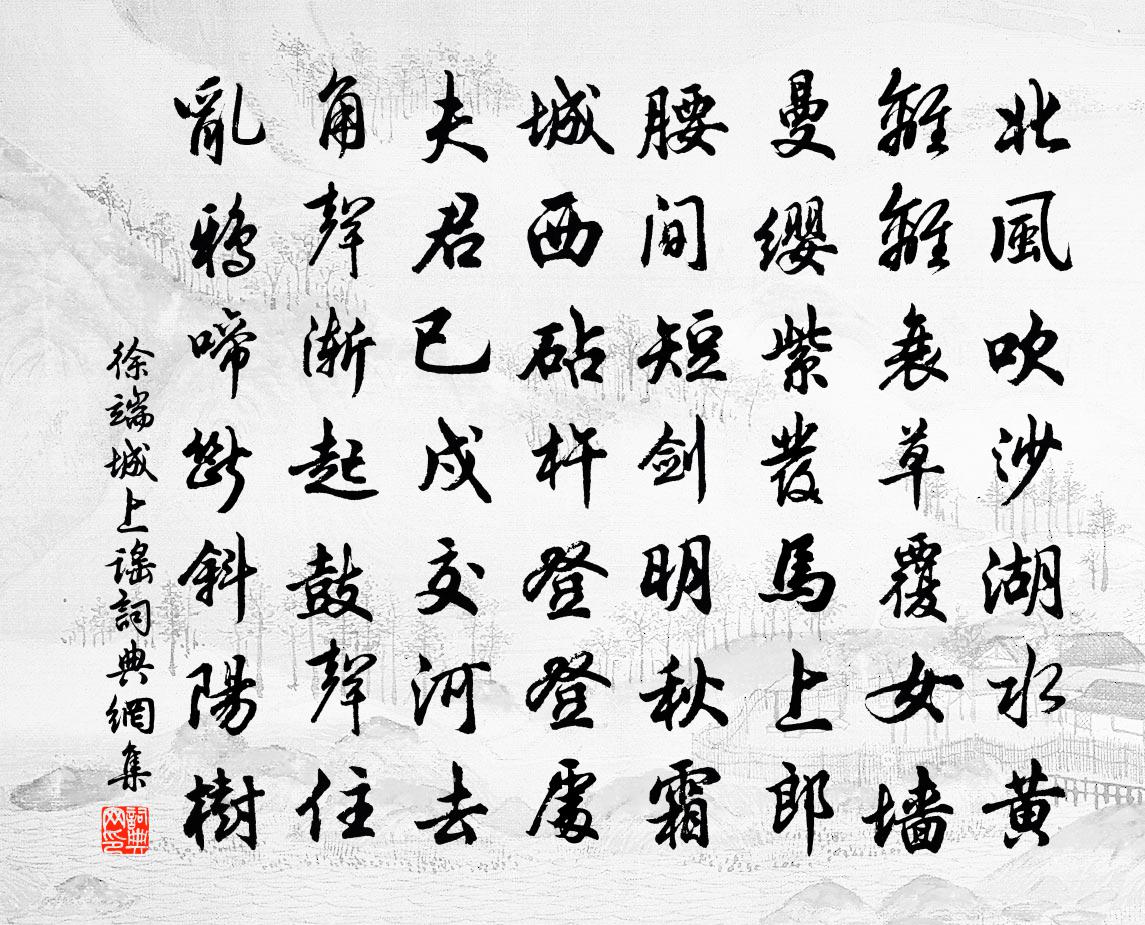 北風吹沙湖水黄
離離衰草覆女墙
曼纓紫發馬上郎
腰間短劍明秋霜
城西砧杵登登處
夫君已戍交河去
角聲漸起鼓聲住
亂鴉啼斷斜陽樹
徐端城上謠詞典網集
詞典